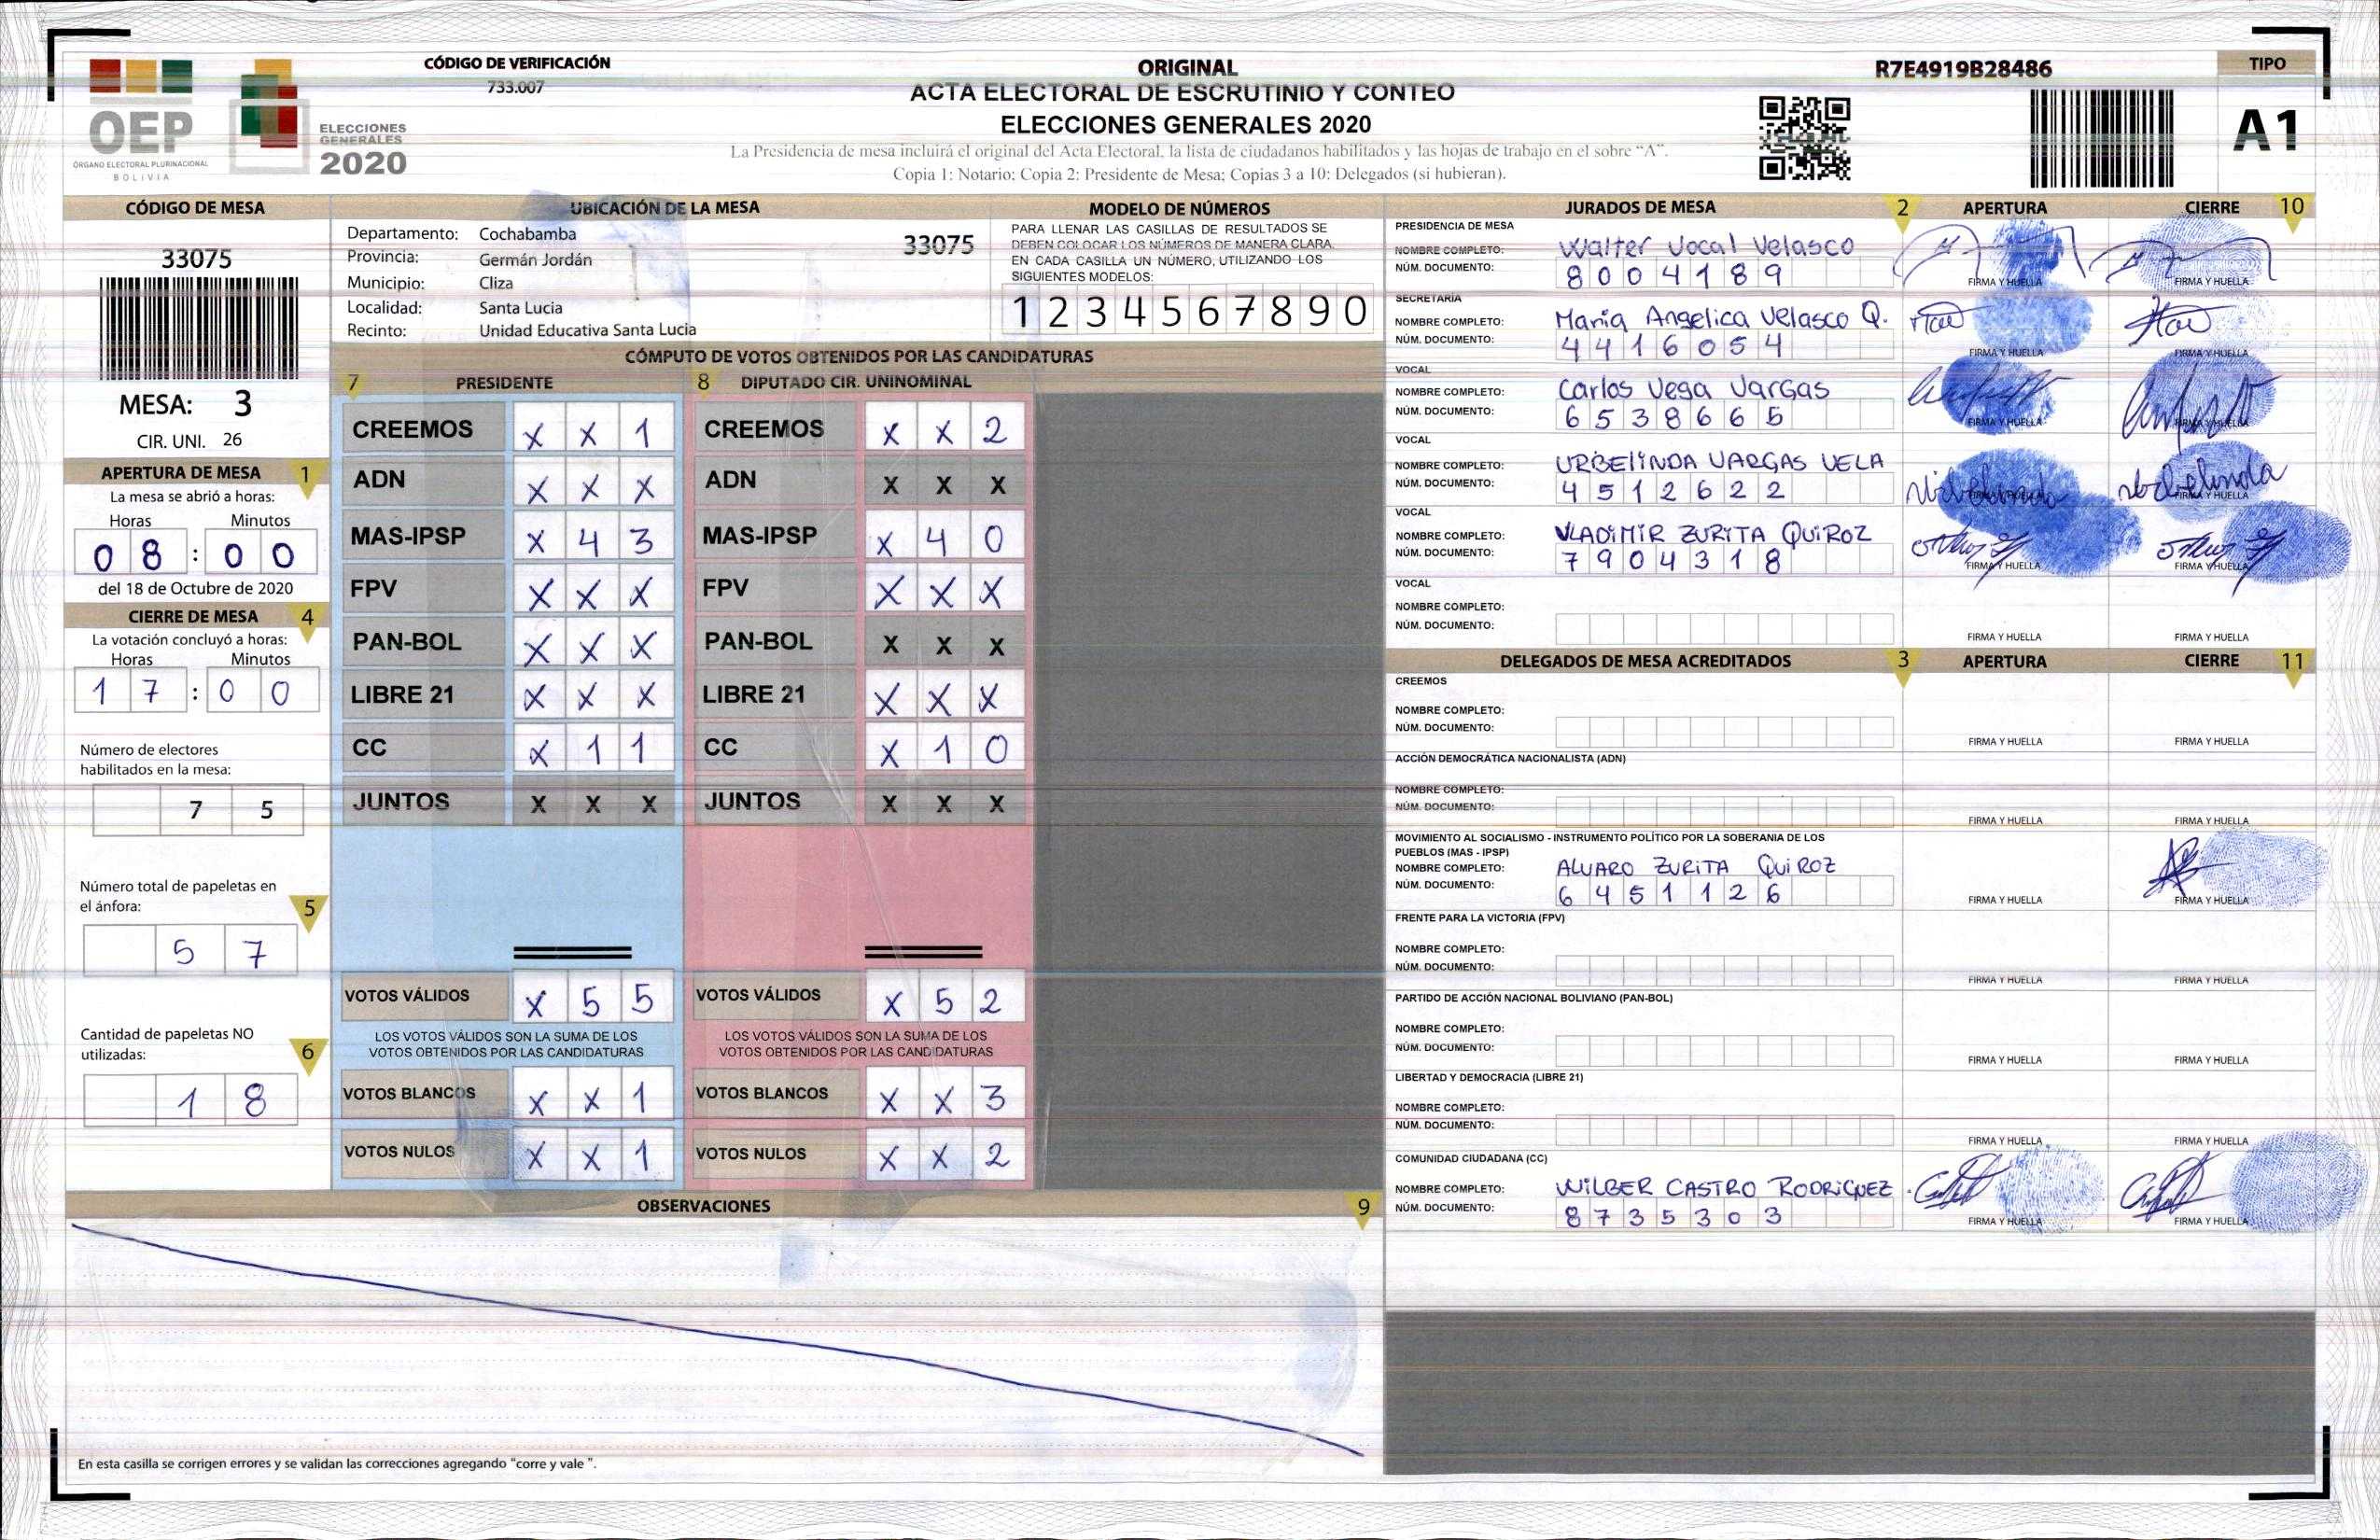 CÓDIGO DE VERIFICACIÓN
733.007
OEP
ÓRGANO ELECTORAL PLURINACIONAL
BOLIVIA
ELECCIONES
GENERALES
2020
ORIGINAL
ACTA ELECTORAL DE ESCRUTINIO Y CONTEO
ELECCIONES GENERALES 2020
La Presidencia de mesa incluirá el original del Acta Electoral, la lista de ciudadanos habilitados y las hojas de trabajo en el sobre “A”.
Copia 1: Notario; Copia 2: Presidente de Mesa; Copias 3 a 10: Delegados (si hubieran).
R7E4919B28486
TIPO
A1
CÓDIGO DE MESA
33075
MESA: 3
CIR. UNI. 26
APERTURA DE MESA 1
La mesa se abrió a horas:
Horas Minutos
0 8 : 0 0
del 18 de Octubre de 2020
CIERRE DE MESA 4
La votación concluyó a horas:
Horas Minutos
1 7 : 0 0
Número de electores
habilitados en la mesa:
7 5
Número total de papeletas en
el ánfora: 5
5 7
Cantidad de papeletas NO
utilizadas: 6
1 8
UBICACIÓN DE LA MESA
Departamento: Cochabamba 33075
Provincia: Germán Jordán
Municipio: Cliza
Localidad: Santa Lucia
Recinto: Unidad Educativa Santa Lucia
MODELO DE NÚMEROS
PARA LLENAR LAS CASILLAS DE RESULTADOS SE
DEBEN COLOCAR LOS NÚMEROS DE MANERA CLARA.
EN CADA CASILLA UN NÚMERO, UTILIZANDO LOS
SIGUIENTES MODELOS:
1 2 3 4 5 6 7 8 9 0
CÓMPUTO DE VOTOS OBTENIDOS POR LAS CANDIDATURAS
7 PRESIDENTE 8 DIPUTADO CIR. UNINOMINAL
CREEMOS X X 1 CREEMOS X X 2
ADN X X X ADN X X X
MAS-IPSP X 4 3 MAS-IPSP X 4 0
FPV X X X FPV X X X
PAN-BOL X X X PAN-BOL X X X
LIBRE 21 X X X LIBRE 21 X X X
CC X 1 1 CC X 1 0
JUNTOS X X X JUNTOS X X X
VOTOS VÁLIDOS X 5 5 VOTOS VÁLIDOS X 5 2
LOS VOTOS VÁLIDOS SON LA SUMA DE LOS LOS VOTOS VÁLIDOS SON LA SUMA DE LOS
VOTOS OBTENIDOS POR LAS CANDIDATURAS VOTOS OBTENIDOS POR LAS CANDIDATURAS
VOTOS BLANCOS X X 1 VOTOS BLANCOS X X 3
VOTOS NULOS X X 1 VOTOS NULOS X X 2
OBSERVACIONES 9
En esta casilla se corrigen errores y se validan las correcciones agregando “corre y vale ”.
JURADOS DE MESA 2 APERTURA CIERRE 10
PRESIDENCIA DE MESA
NOMBRE COMPLETO: Walter Vocal Velasco
NÚM. DOCUMENTO: 8 0 0 4 1 8 9 FIRMA Y HUELLA FIRMA Y HUELLA
SECRETARÍA
NOMBRE COMPLETO: Maria Angelica Velasco Q.
NÚM. DOCUMENTO: 4 4 1 6 0 5 4 FIRMA Y HUELLA FIRMA Y HUELLA
VOCAL
NOMBRE COMPLETO: Carlos Vega Vargas
NÚM. DOCUMENTO: 6 5 3 8 6 6 5 FIRMA Y HUELLA FIRMA Y HUELLA
VOCAL
NOMBRE COMPLETO: URBELINDA VARGAS VELA
NÚM. DOCUMENTO: 4 5 1 2 6 2 2 FIRMA Y HUELLA FIRMA Y HUELLA
VOCAL
NOMBRE COMPLETO: VLADIMIR ZURITA QUIROZ
NÚM. DOCUMENTO: 7 9 0 4 3 1 8 FIRMA Y HUELLA FIRMA Y HUELLA
VOCAL
NOMBRE COMPLETO:
NÚM. DOCUMENTO: FIRMA Y HUELLA FIRMA Y HUELLA
DELEGADOS DE MESA ACREDITADOS 3 APERTURA CIERRE 11
CREEMOS
NOMBRE COMPLETO:
NÚM. DOCUMENTO: FIRMA Y HUELLA FIRMA Y HUELLA
ACCIÓN DEMOCRÁTICA NACIONALISTA (ADN)
NOMBRE COMPLETO:
NÚM. DOCUMENTO: FIRMA Y HUELLA FIRMA Y HUELLA
MOVIMIENTO AL SOCIALISMO - INSTRUMENTO POLÍTICO POR LA SOBERANIA DE LOS
PUEBLOS (MAS - IPSP)
NOMBRE COMPLETO: ALVARO ZURITA QUIROZ
NÚM. DOCUMENTO: 6 4 5 1 1 2 6 FIRMA Y HUELLA FIRMA Y HUELLA
FRENTE PARA LA VICTORIA (FPV)
NOMBRE COMPLETO:
NÚM. DOCUMENTO: FIRMA Y HUELLA FIRMA Y HUELLA
PARTIDO DE ACCIÓN NACIONAL BOLIVIANO (PAN-BOL)
NOMBRE COMPLETO:
NÚM. DOCUMENTO: FIRMA Y HUELLA FIRMA Y HUELLA
LIBERTAD Y DEMOCRACIA (LIBRE 21)
NOMBRE COMPLETO:
NÚM. DOCUMENTO: FIRMA Y HUELLA FIRMA Y HUELLA
COMUNIDAD CIUDADANA (CC)
NOMBRE COMPLETO: WILBER CASTRO RODRIGUEZ
NÚM. DOCUMENTO: 8 7 3 5 3 0 3 FIRMA Y HUELLA FIRMA Y HUELLA